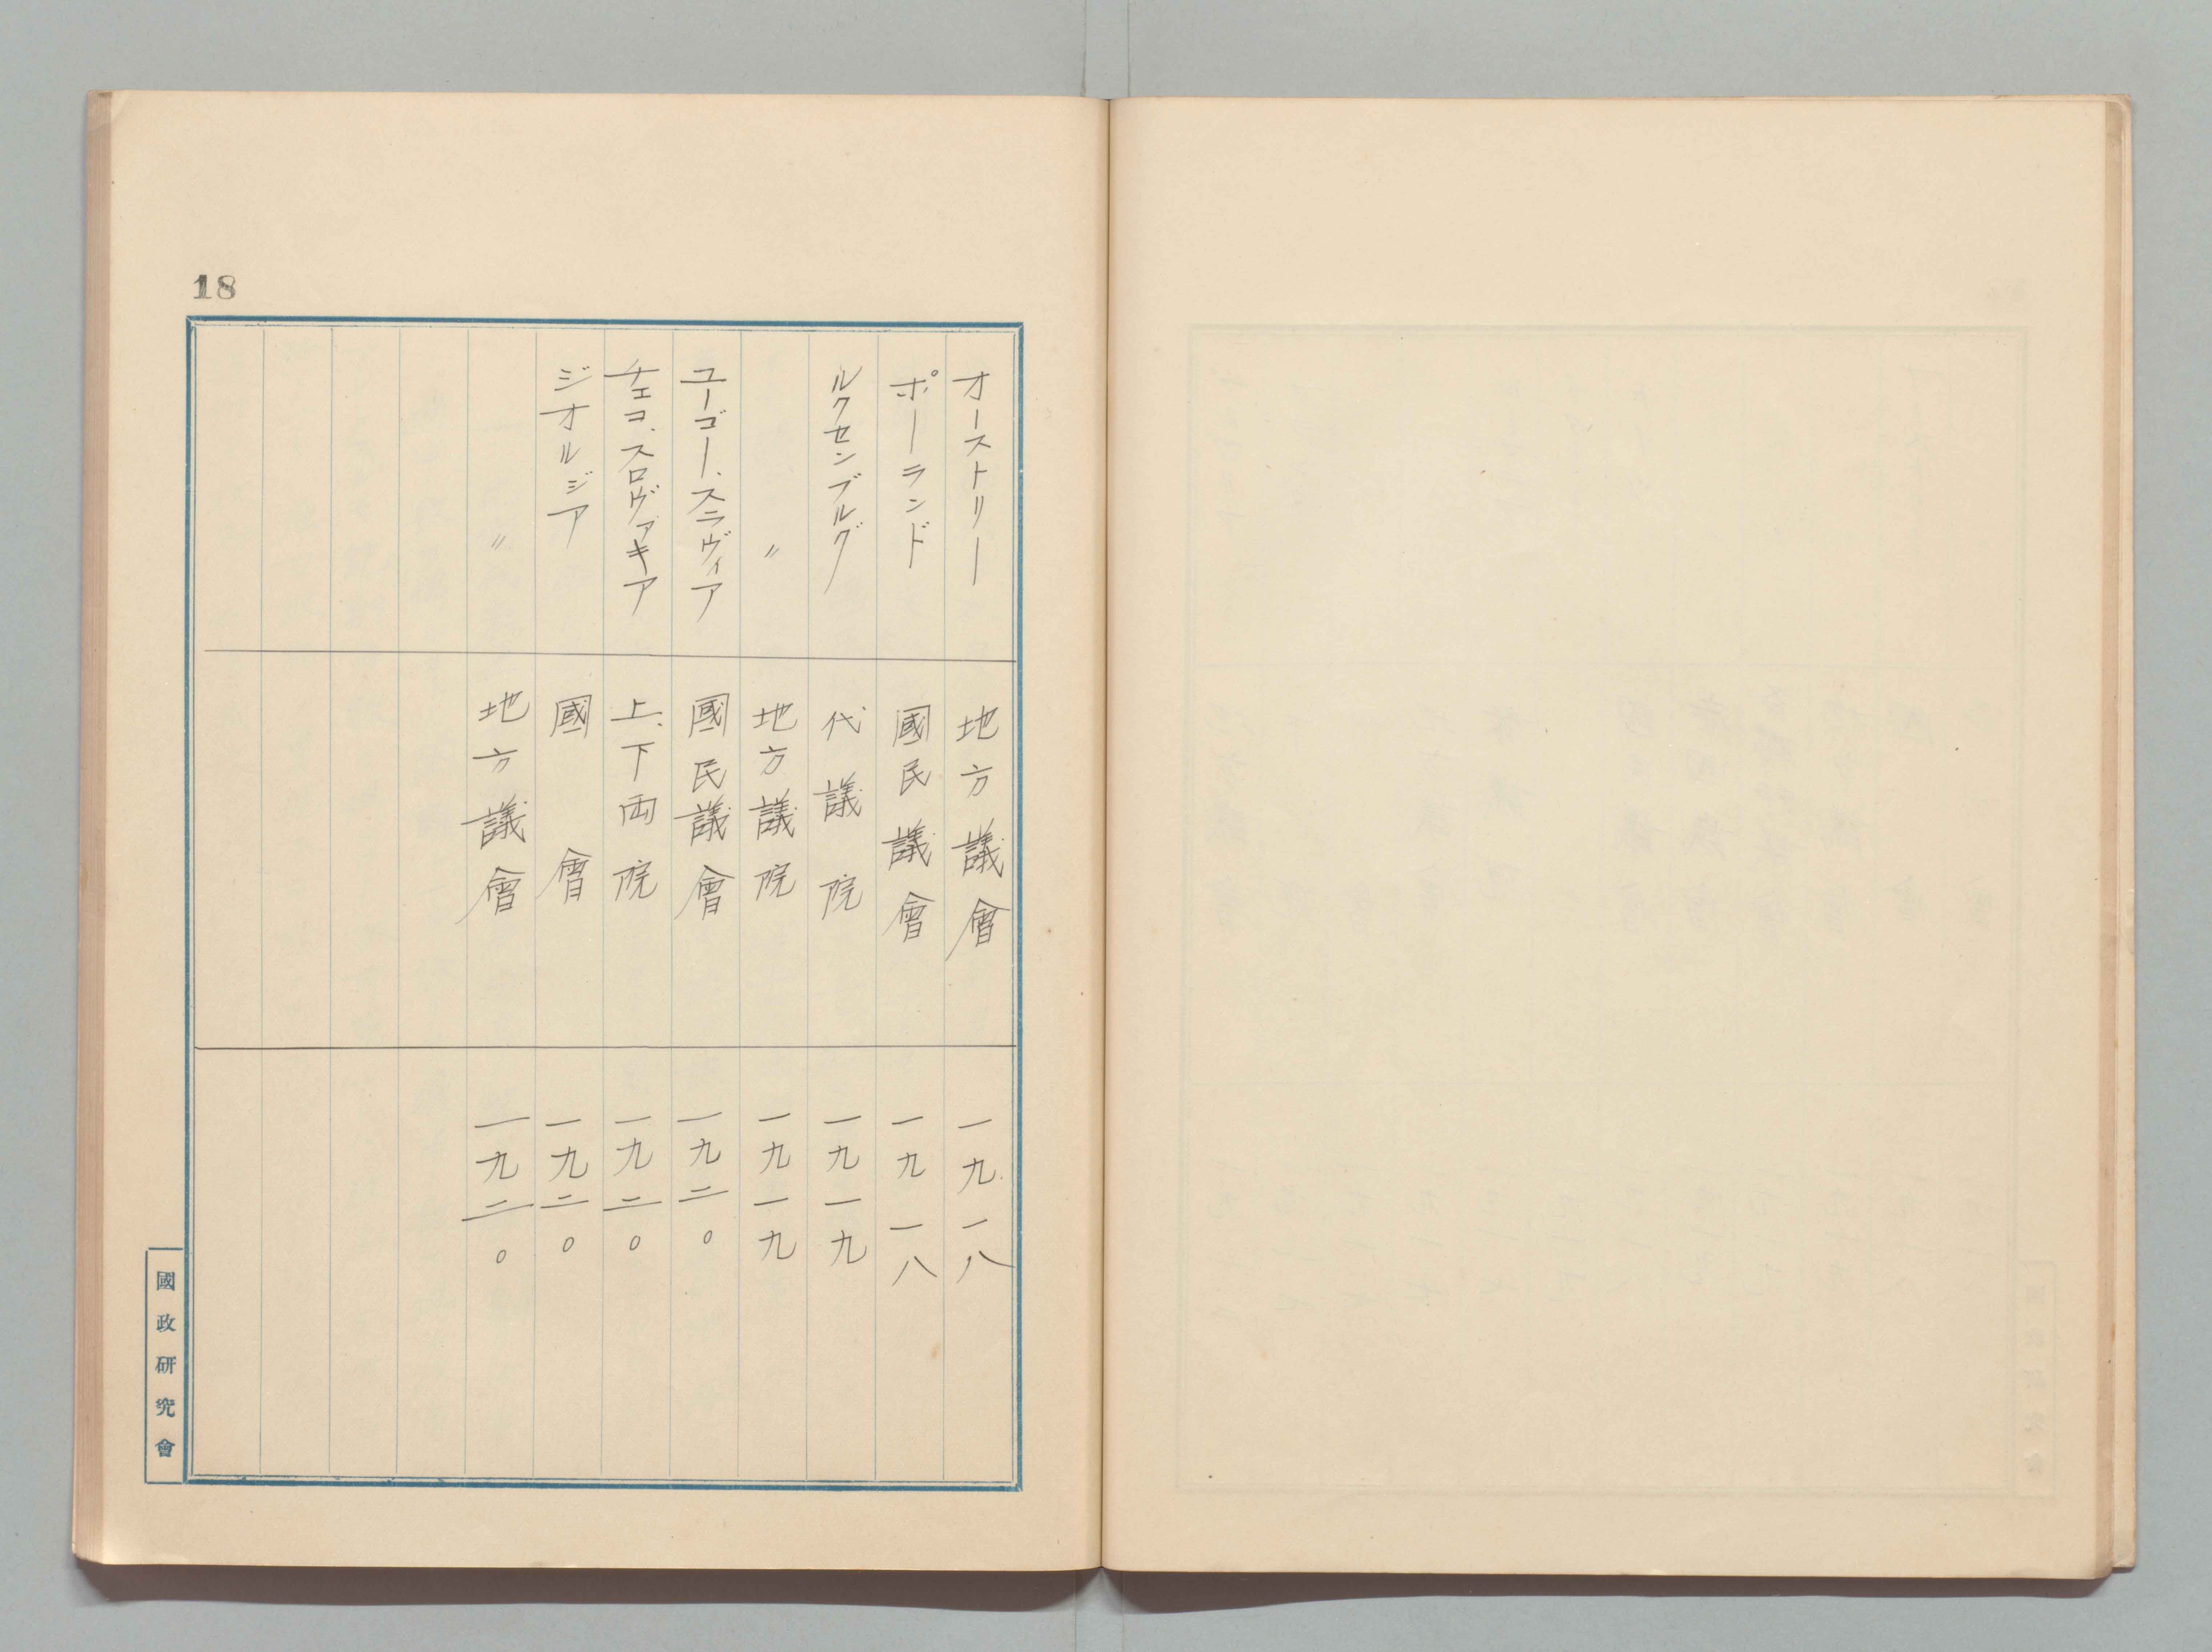 18
オーストリー 地方議會 一九一八
ポーランド 國民議會 一九一八
ルクセンブルグ 代議院 一九一九
〃 地方議院 一九一九
ユーゴー、スラヴィア 國民議會 一九二〇
チェコ、スロヴァキア 上、下両院 一九二〇
ジオルジア 國會 一九二〇
〃 地方議會 一九二〇
國政研究會